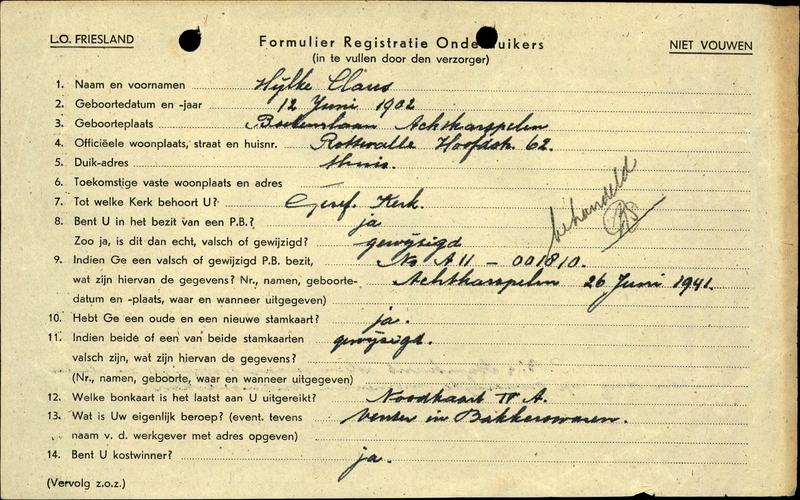 L.O. FRIESLAND
Formulier Registratie Onderduikers
NIET VOUWEN
(in te vullen door den verzorger)
1. Naam en voornamen Hijlke Claus
2. Geboortedatum en -jaar 12 Juni 1902
3. Geboorteplaats Boelenslaan Achtkarspelen
4. Officiëele woonplaats, straat en huisnr. Rottevalle Hoofdstr. 62.
5. Duik-adres thuis.
6. Toekomstige vaste woonplaats en adres
7. Tot welke Kerk behoort U? Geref. Kerk.
behandeld
8. Bent U in het bezit van een P.B.? ja
Zoo ja, is dit dan echt, valsch of gewijzigd? gewijsigd
9. Indien Ge een valsch of gewijzigd P.B. bezit, No A 11 - 001810.
wat zijn hiervan de gegevens? Nr., namen, geboorte- Achtkarspelen 26 Juni 1941.
datum en -plaats, waar en wanneer uitgegeven)
10. Hebt Ge een oude en een nieuwe stamkaart? ja.
11. Indien beide of een van beide stamkaarten gewijsigd.
valsch zijn, wat zijn hiervan de gegevens?
(Nr., namen, geboorte, waar en wanneer uitgegeven)
12. Welke bonkaart is het laatst aan U uitgereikt? Noodkaart IV A.
13. Wat is Uw eigenlijk beroep? (event. tevens venter in Bakkerswaren.
naam v. d. werkgever met adres opgeven)
14. Bent U kostwinner? ja.
(Vervolg z.o.z.)